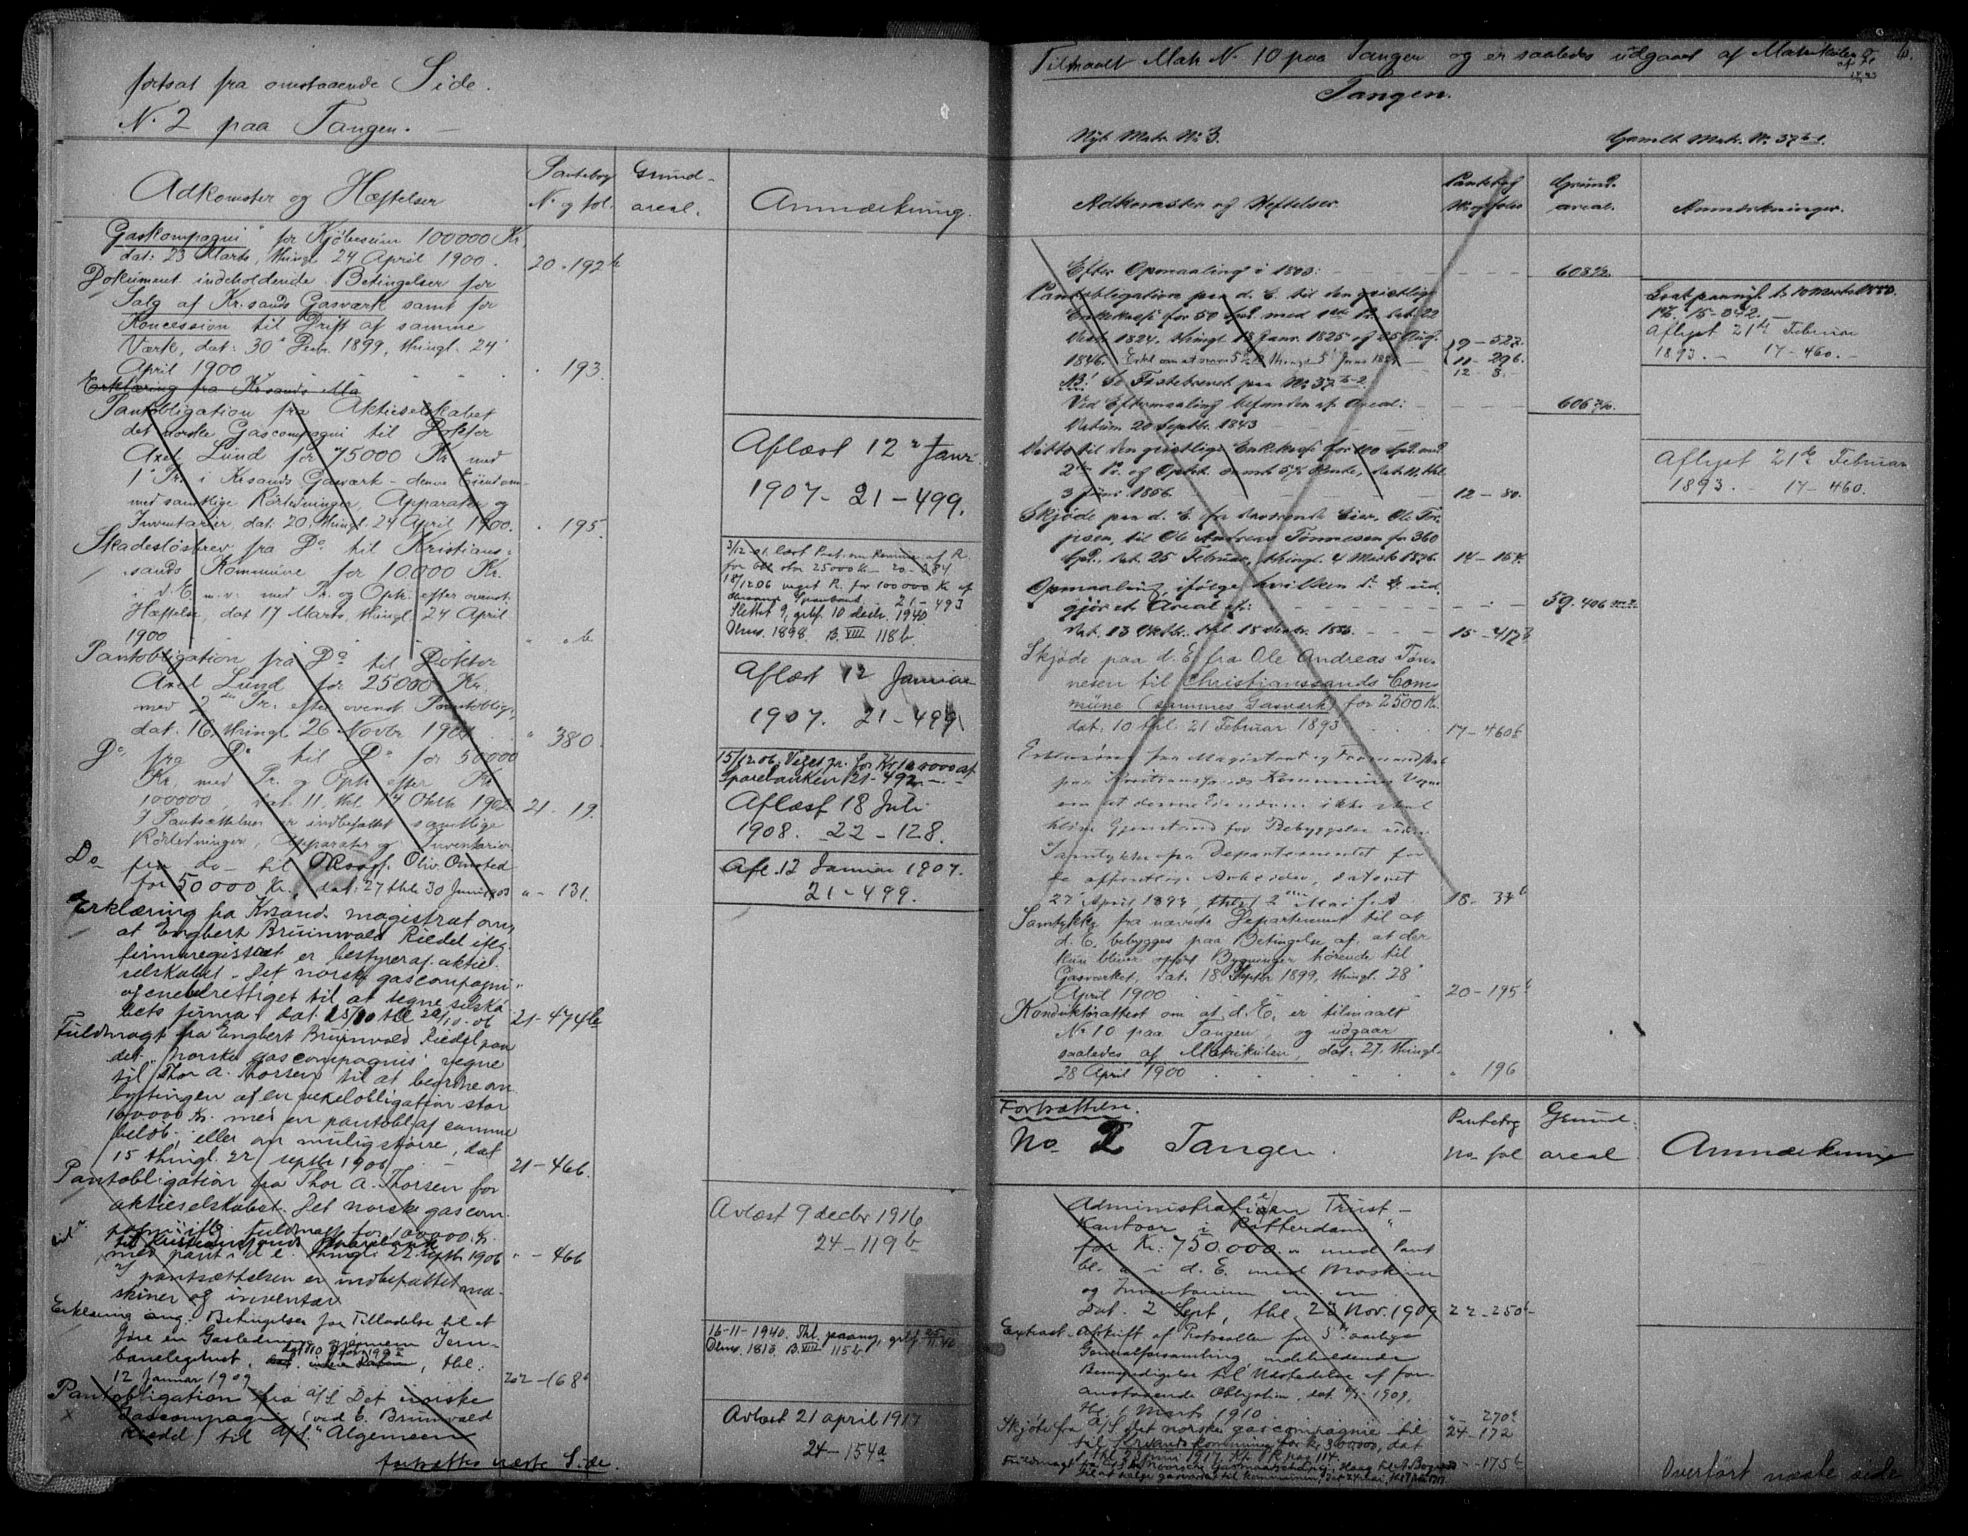 fortsat fra omstaaende Side.
No 2 paa Tangen.
Adkomster og Hæftelser
Pantebog
No og fol.
Grund-
areal.
Anmærkning.
Gaskompagni" for Kjøbesum 100000 Kr.
dat: 23 Marts, thingl. 24 April 1900. 20-192b
Dokument indeholdende Betingelser for
Salg af Kr.sands Gasværk samt for
Koncession til Drift af samme
Værk, dat: 30' Decbr. 1899, thingl. 24'
April 1900 " 193.
Erklæring fra Krsands Ma
Pantobligation fra Aktieselskabet
det norske Gascompagni til Doktor
Axel Lund for 75000 Kr med
1' Pr. i Krsands Gasværk - denne Eiendom
med samtlige Rørledninger, Apparater og
Inventarier, dat. 20, thingl. 24 April 1900. " 195.
Aflæst 12' Janr.
1907- 21-499.
Skadesløsbrev fra Do til Kristians-
sands Kommune for 10.000 Kr.
i d. E. m.v. med Pr. og Opr. efter ovenst.
Hæftelse, dat 17 Marts, thingl. 24 April
1900 " " b.
for 25000 K - 20-
18/12.06 veget Pr. for 100000 K af
21-493
Slettet 9, grbf. 10 decbr. 1940
Dms. 1898. B. VIII 118b
Pantobligation fra Do til Doktor
Axel Lund for 25000 Kr.
med 2den Pr. efter ovenst. Pantoblig.,
dat. 16, thingl. 26 Novbr 1901 " 380.
Aflæst 12 Januar
1907. 21-499
Do fra Do til Do for 50000
Kr. med Pr. og Opr. efter Kr
100000, dat. 11, thl. 14 Oktb 1902 21-19.
I Pantsættelsen er indbefattet samtlige
Rørledninger, Apparater og Inventarier
15/12.06. Veget pr. for Kr 100000 af
Sparebanken 21-492
Aflæst 18 Juli
1908. 22-128.
Do fra do til Oliv. Omsted
for 50000 Kr., dat: 27 thl. 30 Juni 1903 " - 131.
Afl. 12 Januar 1907.
21-499.
Erklæring fra Krsands magistrat om,
at Engbert Bruinwald Riedel iflg
firmaregistret er bestyrer af aktie-
selskabet "Det norske gascompagni"
og eneberettiget til at tegne selska-
bets firma, dat. 25/10 thl 26/10-06 21-474b
Fuldmagt fra Engbert Bruinwald Riedel paa
det "norske gascompagnis" vegne
til Thor A. Thorsen til at besørge om-
bytningen af en vexelobligation stor
100000 Kr. med en pantobl. af samme
beløb, eller om mulig større, dat
15 thingl. 22 septbr 1906 21-466.
Pantobligation fra Thor A. Thorsen for
aktieselskabet Det norske gascom-
pagni iflg. fuldmagt for 100000 Kr.
til Kristianssands Sparebank
med pant i d. E. thingl. 22 septb 1906 " - 466
I pantsættelsen er indbefattet ma-
skiner og inventar
Avlæst 9 decbr 1916
24-119b
Erklæring ang. Betingelser for Tilladelse til at
føre en Gasledning gjennem Jern-
banelegemet,
12 Januar 1909 22-168b
16-11-1940. Thl. paany, grbf.
Dms. 1813. B. VIII 115b
Pantobligation fra A/S Det norske
Gascompagni (ved E. Bruinwald
Riedel) til A/S. "Algemeen
Avlæst 21 april 1917
24-154a
fortsættes næste Side.
Tilmaalt Matr. No 10 paa Tangen og er saaledes udgaaet af Matrikulen
6.
Tangen.
Nyt Matr. No 3.
Gamelt Matr. No 37b-1.
Adkomster og Heftelser.
Pantebog
No og folio
Grund-
areal.
Anmærkninger.
Efter Opmaaling i 1803:
Pantobligation paa d. E. til den geistlige
Enkekasse for 50 Spd. med 1ste Pr. dat. 22
Septr. 1824, thingl. 13 Janr. 1825 og 25 Aug.
1846. 9-527.
11-296.
12-3.
Aflyst 21de Februar
1893. - 17-460.-
NB! Se Festebrevet paa No 37b-2
Ved Eftermaaling befunden at Areal:
Datum 20 Septbr. 1843
Ditto til den geistlige Enkekasse for 100 Spd. med
2den Pr. og Oprbt.
3 Juni 1856 12-80.
Aflyst 21de Februar
1893. - 17-460.
Skjøde paa d. E. fra
til Ole Andreas Tønnesen for 360
Spd., dat. 25 Februar, thingl. 4 Marts 1876. 14-154.
Opmaaling, ifølge hvilken d. E. ud-
gjør et Areal af: 59.406 m2
dat. 13 Oktbr. thl. 15 1883. 15-412b
Skjøde paa d. E. fra Ole Andreas Tøn-
nesen til Christianssands Com-
müne (sammes Gasværk) for 2500 Kr.
dat. 10 thl. 21 Februar 1893 17-460b
Erklæring fra Magistrat og Formandskab
paa Kristianssands Kommunes Vegne
om at denne Eiendom ikke skal
blive Gjenstand for Bebyggelse uden
Samtykke fra Departementet for
de offentlige Arbeider, dateret
27' April 1897, thlst 2den Mai s. A. 18-34b
Samtykke fra nævnte Departement til at
d. E. bebygges paa Betingelse af, at der
kun bliver opført Bygninger hørende til
Gasværket, dat. 18' Septbr 1899, thingl. 28'
April 1900 20-195b
Konduktørattest om at d. E. er tilmaalt
No. 10 paa Tangen, og udgaar
saaledes af Matrikulen, dat. 27, thingl.
28 April 1900 " 196
Fortsættelse.
No 2 Tangen.
Pantebog
No fol
Grund-
areal
Anmærkning
Administratieen Trust-
Kantoor i Rotterdam"
for Kr: 750.000.- med Pant
bl. a. i d. E. med Maskiner
og Inventarium m. m.
Dat. 2 Sept, thl. 23 Nov. 1909 22-250b
Extract-Afskrift af Protocollen for 5te aarlige
Generalforsamling indeholdende
Bemyndigelse til Udstedelse af for-
anstaaende Obligation, dat. 1909,
thl. 1 Marts 1910 " 270b
Skjøte fra A/S Det norske gascompagnie til
Krsands kommune for kr. 360000, dat 24-172
" - 175b
til at sælge gasverket til kommunen,
Overført næste side